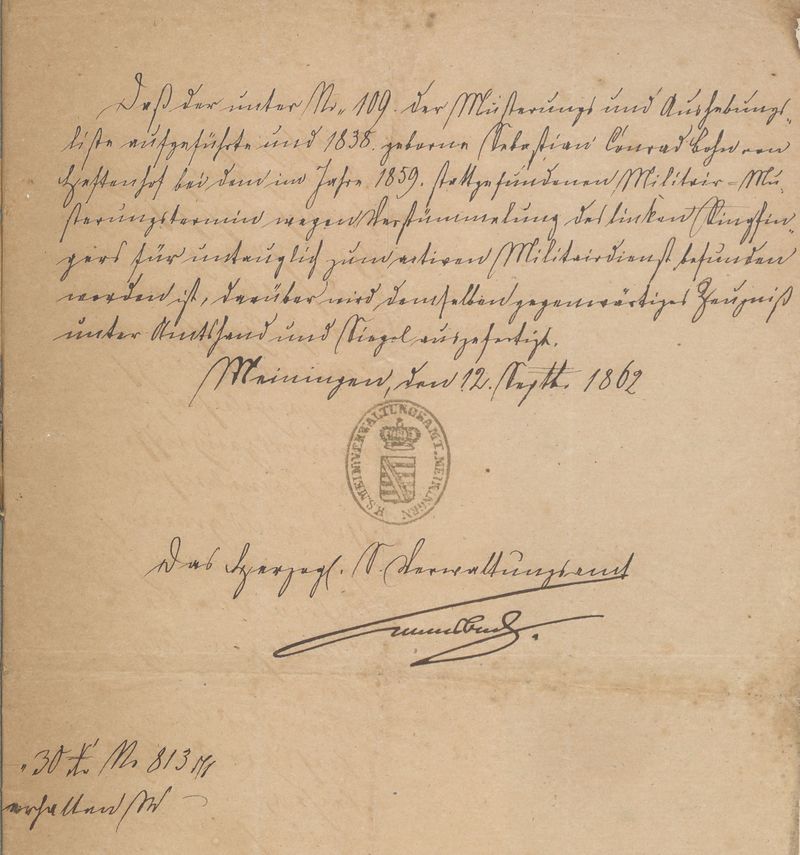 Daß der unter Nr. 109. der Musterungs und Aushebungs-
liste aufgeführte und 1838. geborne Sebastian Conrad Bohn von
bei dem im Jahre 1859. stattgefundenen Militair-Mu-
sterungstermin wegen Verstümmelung des linken Ringfin-
gers für untauglich zum activen Militairdienst befunden
worden ist, darüber wird demselben gegenwärtiges Zeugniß
unter Amtshand und Siegel ausgefertigt.
Meiningen, den 12. Septbr. 1862
H. S. MEIN. VERWALTUNGSAMT. MEININGEN
Das Herzogl. S. Verwaltungsamt
30 Xr Nr 813
erhalten